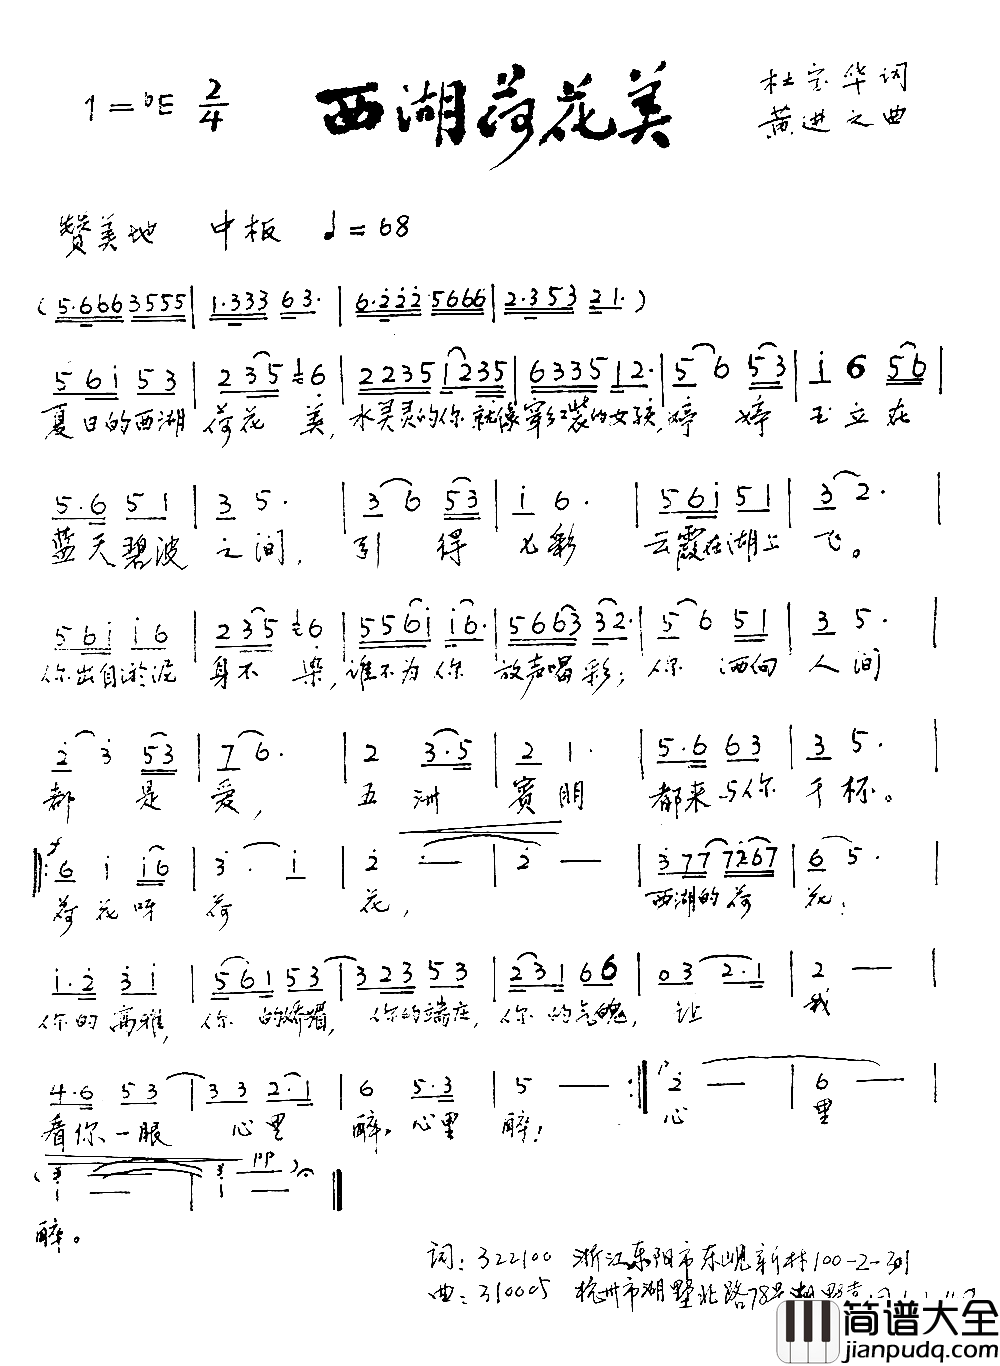 1=bE 2/4
西湖荷花美
杜宝华词
黄进之曲
赞美地 中板 ♩=68
(5·666 3555 | 1·333 63· | 6·222 5666 | 2·353 21· )
561 53 | 235 6 | 2235 1235 | 633512· | 5 6 53 | 1 6 56 |
夏日的西湖 荷花 美,水灵灵的你就像穿红装的女孩,婷 婷 玉立在
5·6 51 | 3 5· | 3 6 53 | 1 6· | 561 51 | 3 2· |
蓝天碧波 之间, 引 得 七彩 云霞在湖上 飞。
561 16 | 235 6 | 5561 16· | 5663 32· | 5 6 51 | 3 5· |
你出自淤泥 身不 染,谁不为你 放声唱彩;你 洒向 人间
2 3 53 | 7 6· | 2 3·5 | 2 1· | 5·6 63 | 3 5· |
都 是 爱, 五 洲 宾朋 都来与你 干杯。
f
6 1 16 | 3· 1 | 2 — | 2 — | 377 7267 | 6 5· |
荷花呀 荷 花, 西湖的荷 花;
1·2 31 | 561 53 | 323 53 | 231 66 | 03 2·1 | 2 — |
你的高雅,你 的娇媚,你的端庄,你 的气魄,让 我
4·6 53 | 33 2·1 | 6 5·3 | 5 — :| p 2 — | 6 — |
看你一眼 心里 醉,心里 醉! 心 里
pp
醉。
词:322100 浙江东阳市东岘新村100-2-301
曲:310005 杭州市湖墅北路78号
简谱大全
jianpudq.com